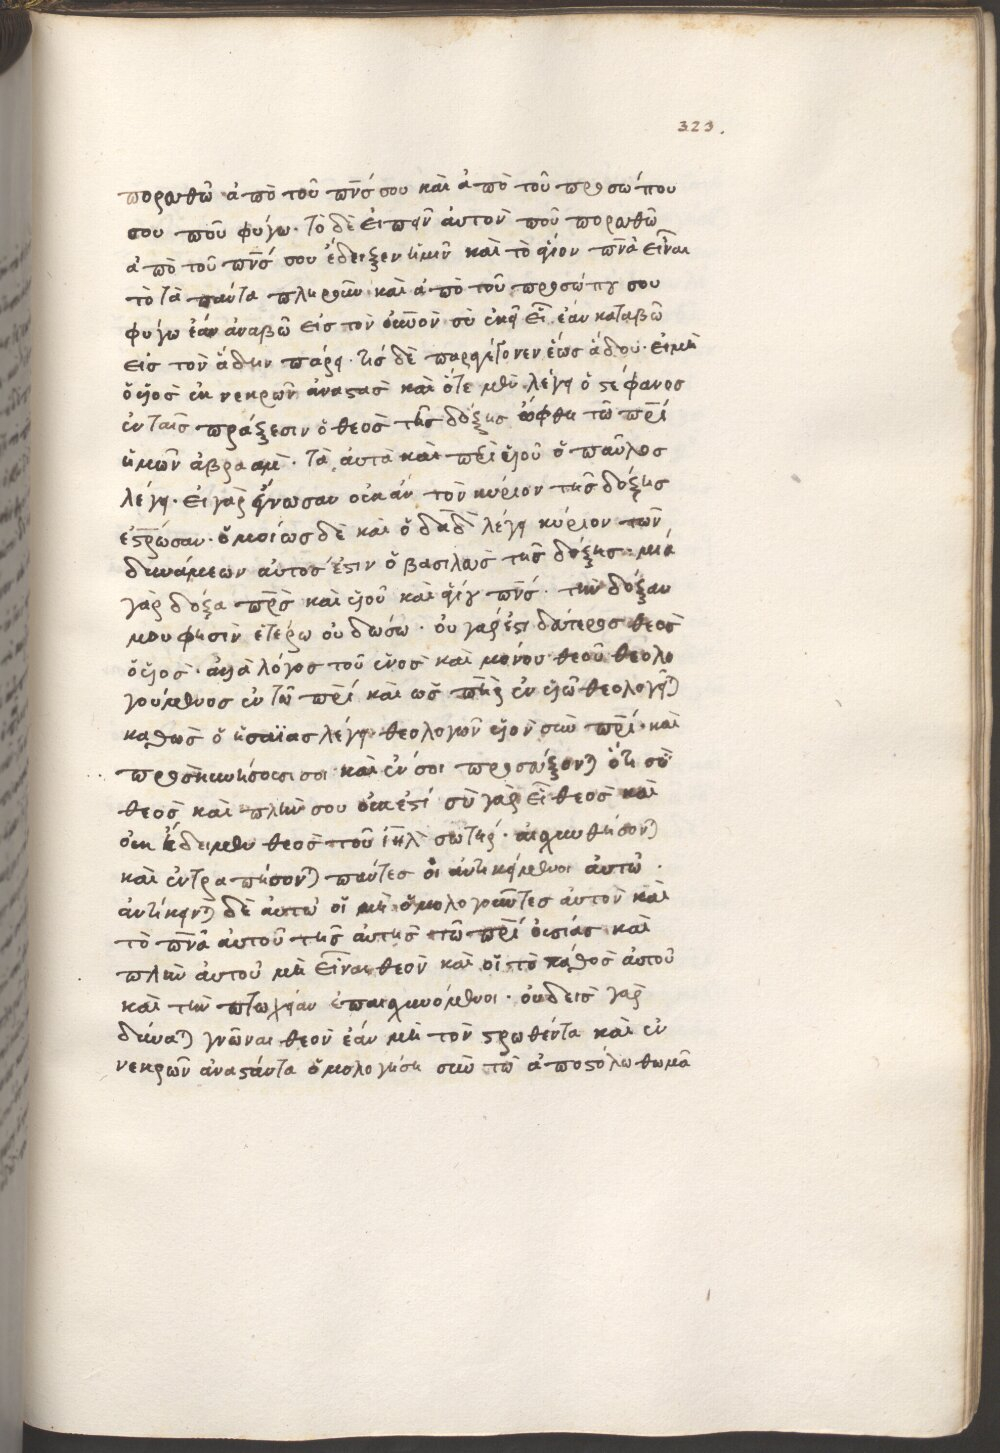 323.
πορευθῶ ἀπὸ τοῦ πν̅σ́ σου καὶ ἀπὸ τοῦ προσώπου
σου ποῦ φύγω· τὸ δὲ εἰπεῖν ἀυτὸν ποῦ πορευθῶ
ἀπὸ τοῦ πν̅σ́ σου ἔδειξεν ἡμῖν καὶ τὸ ἅγιον πν̅ὰ εἶναι
τὸ τὰ πάντα πληροῦν καὶ ἀπὸ τοῦ προσώπου σου
φύγω ἐὰν ἀναβῶ εἰς τὸν ουνὸν σὺ ἐκεῖ εἶ ἐὰν καταβῶ
εἰς τὸν ἅδην πάρει· τίς δὲ παραγέγονεν ἕως ἅδου· εἰ μὴ
ὁ υἱὸς ἐκ νεκρῶν ἀναστὰς καὶ ὅτε μὲν λέγει ὁ στέφανος
ἐν ταῖς πράξεσιν ὁ θεὸς τῆς δόξης ὤφθη τῶ πρ̅ί
ἡμῶν ἀβρααμ̀· τὰ ἀυτὰ καὶ περὶ υἱοῦ ὁ παῦλος
λέγει· εἰ γὰρ ἔγνωσαν οὐκ ἀν τὸν κύριον τῆς δόξης
ἐστρ̅ώσαν· ὁμοίως δὲ καὶ ὁ δα̅δ̀ λέγει κύριον τῶν
δυνάμεων αὐτός ἐστιν ὁ βασιλεὺς τῆς δόξης· μιὰ
γὰρ δόξα πρ̅ς̀ καὶ υἱοῦ καὶ ἁγίου πν̅σ́· τὴν δόξαν
μου φησὶν ἑτέρω οὐ δώσω· οὐ γάρ ἐστι δεύτερος θεὸς
ὁ υἱὸς· ἀλλὰ λόγος τοῦ ἑνὸς καὶ μόνου θεοῦ θεολο
γούμενος ἐν τῶ πρ̅ί καὶ ὡς π̅ηρ̀ ἐν υἱῶ θεολογεῖ)
καθὼς ὁ ἡσαΐας λέγει θεολογῶν υἱὸν σὺν πρ̅ί· καὶ
προσκυνήσουσι σοι καὶ ἐν σοι προσεύξον) ὅτι σὺ
θεὸς καὶ πλὴν σου οὐκ ἐστί σὺ γὰρ εἶ θεὸς καὶ
οὐκ ἤδειμεν θεὸς τοῦ ἰη̅λ̀ σωτήρ· αἰσχυνθήσον)
καὶ ἐντραπήσον) πάντες οἱ ἀντικείμενοι ἀυτῶ·
ἀντίκειν) δὲ ἀυτῶ οἱ μὴ ὁμολογοῦντες ἀυτὸν καὶ
τὸ πν̅ὰ ἀυτοῦ τῆς ἀυτῆς τῶ πρ̅ί οὐσίας καὶ
πλὴν ἀυτοῦ μὴ εἶναι θεὸν καὶ οἱ τὸ πάθος ἀυτοῦ
καὶ τὴν πτωχείαν ἐπαισχυνόμενοι· οὐδεὶς γὰρ
δύνα) γνῶναι θεὸν ἐὰν μὴ τὸν στρωθέντα καὶ ἐκ
νεκρῶν ἀναστάντα ὁμολογήση σὺν τῶ ἀποστόλω θωμᾶ